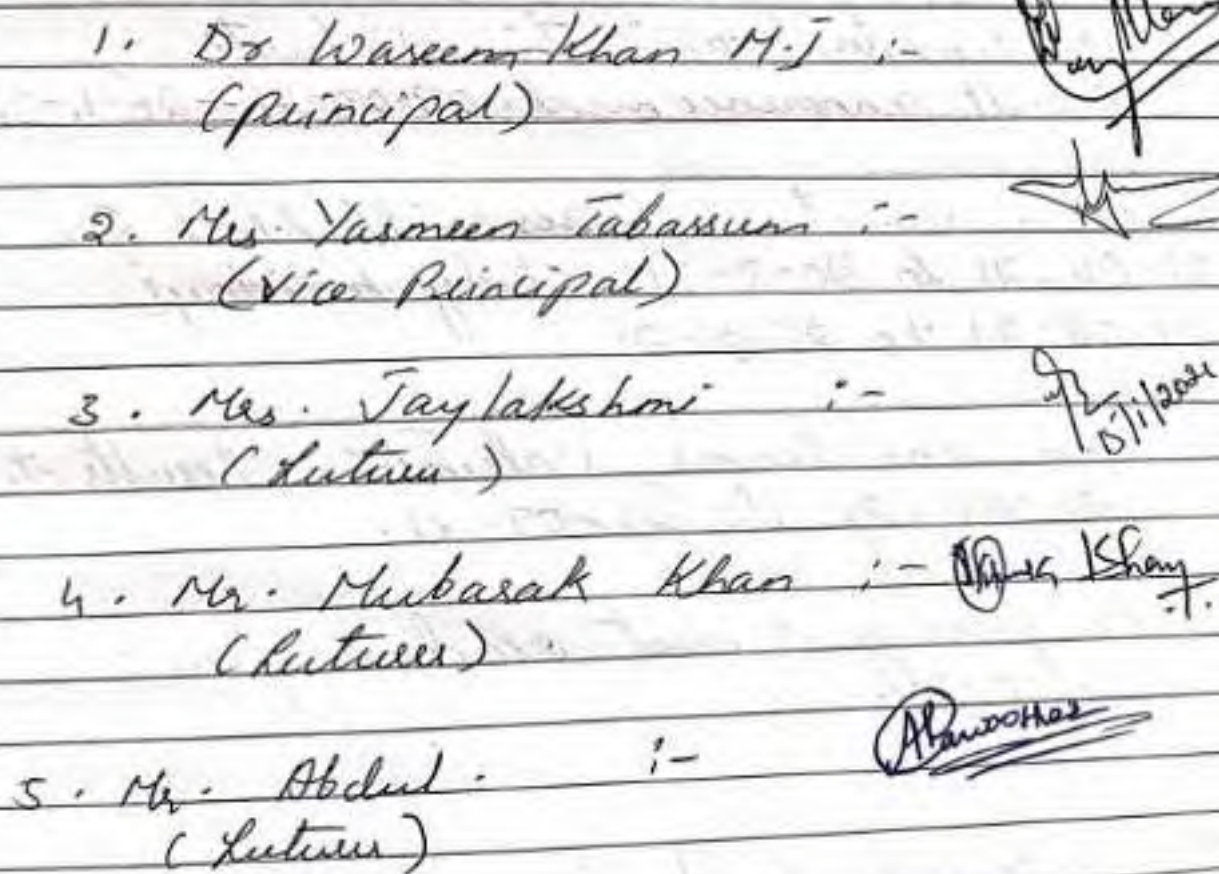 1. Dr Waseem Khan M.J :-
(principal)
2. Mrs. Yasmeen Tabassum :-
(Vice Principal)
3. Mrs. Jaylakshmi :-
5/1/2021
(Lecturer)
4. Mr. Mubarak Khan :- Khan
(Lecturer)
5. Mr. Abdul. :-
(Lecturer)